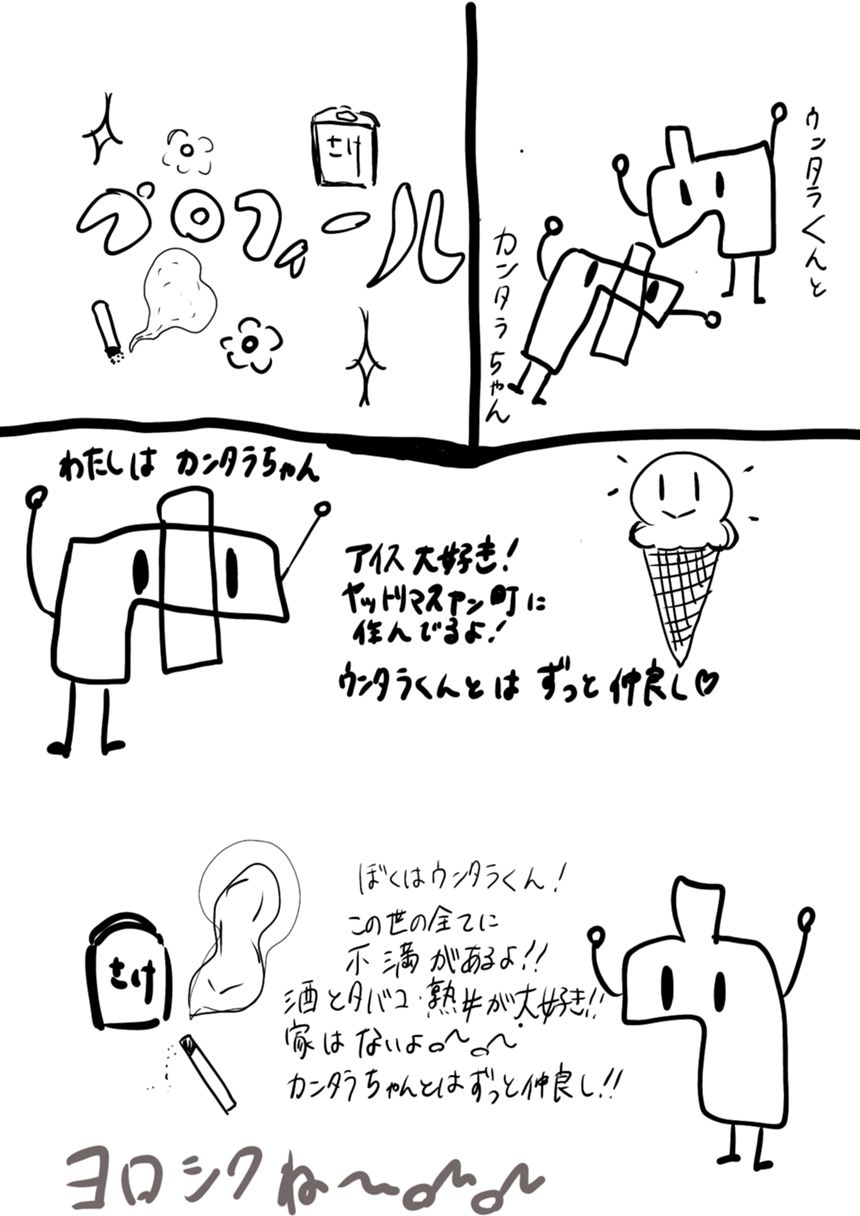 ウンタラくんと
カンタラちゃん
プロフィール
さけ
わたしは カンタラちゃん
アイス大好き!
ヤットリマスヤン町に
住んでるよ!
ウンタラくんとは ずっと仲良し♡
ぼくはウンタラくん!
この世の全てに
不満があるよ!!
酒とタバコ・熟女が大好き!!
家はないよ〜〜
カンタラちゃんとはずっと仲良し!!
さけ
ヨロシクね〜〜